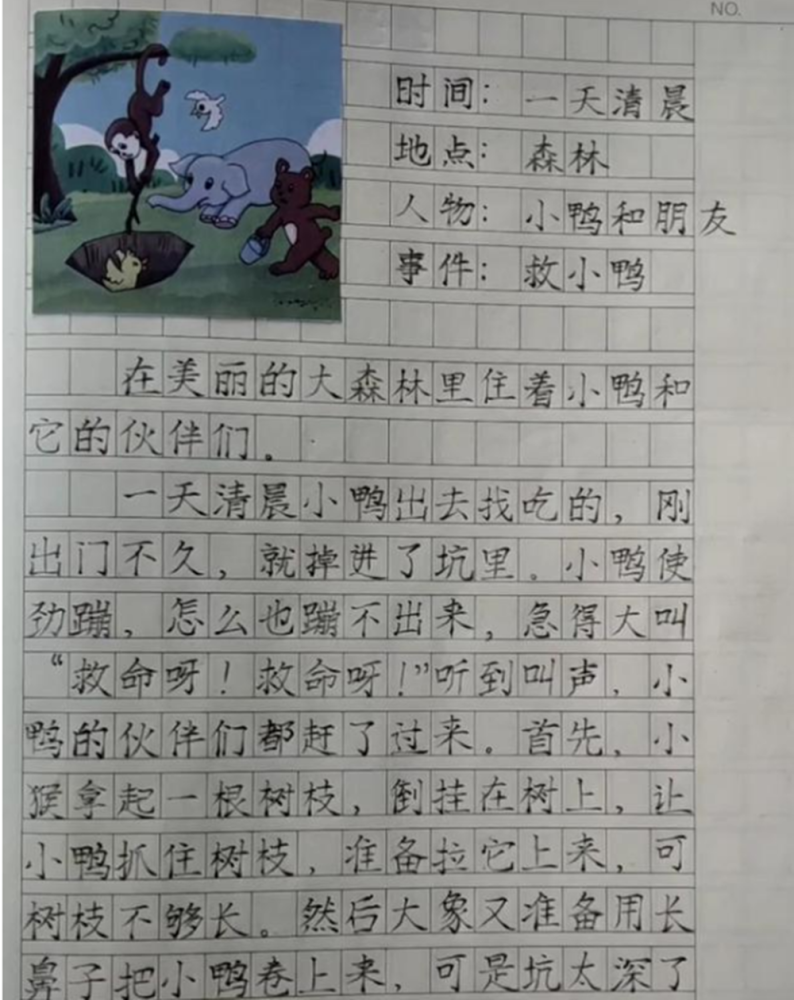 NO.
时间：一天清晨
地点：森林
人物：小鸭和朋友
事件：救小鸭
在美丽的大森林里住着小鸭和
它的伙伴们。
一天清晨小鸭出去找吃的，刚
出门不久，就掉进了坑里。小鸭使
劲蹦，怎么也蹦不出来，急得大叫
“救命呀！救命呀！”听到叫声，小
鸭的伙伴们都赶了过来。首先，小
猴拿起一根树枝，倒挂在树上，让
小鸭抓住树枝，准备拉它上来，可
树枝不够长。然后大象又准备用长
鼻子把小鸭卷上来，可是坑太深了